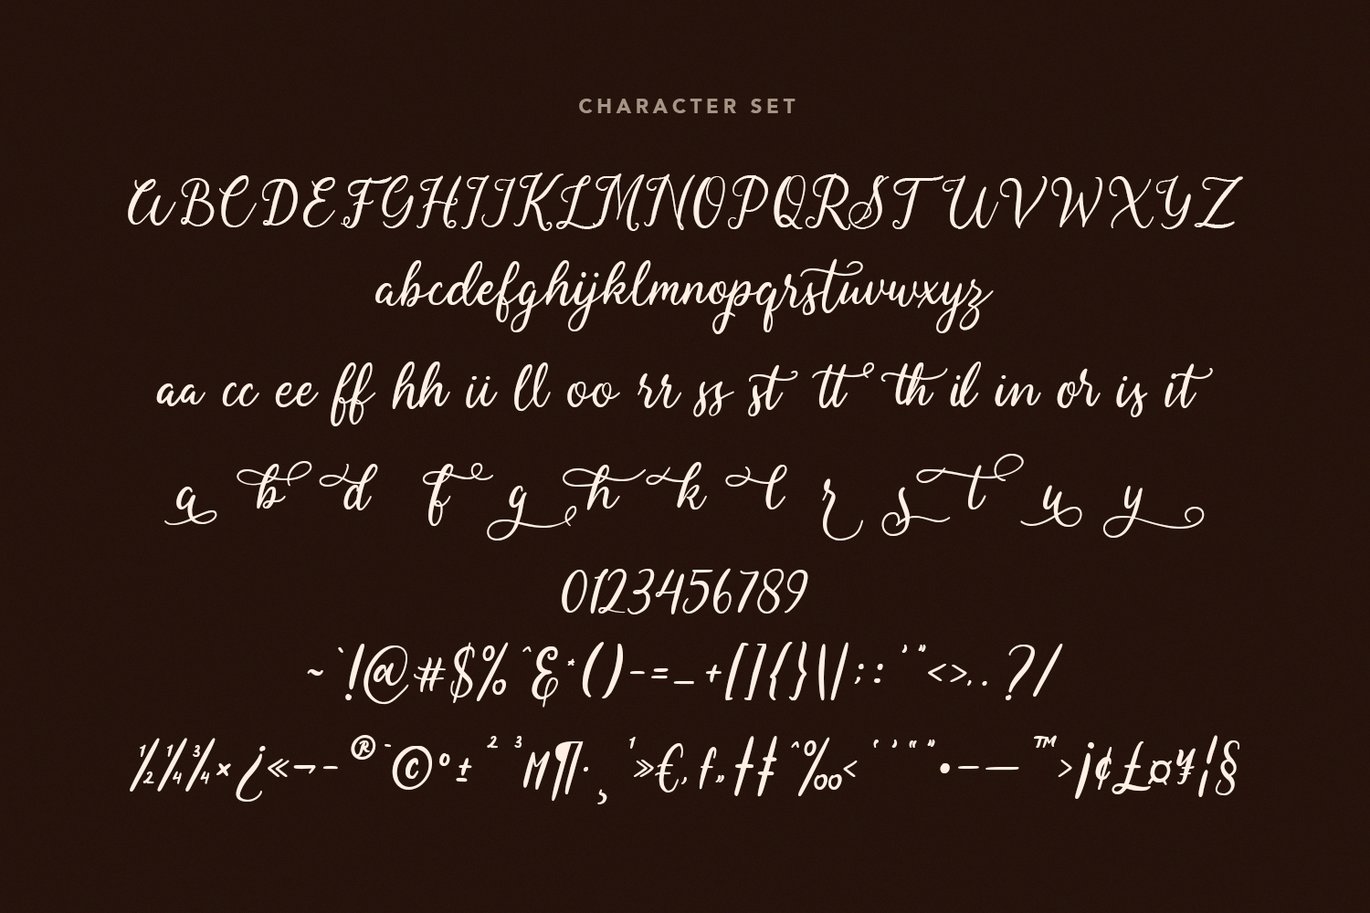 CHARACTER SET
ABCDEFGHIJKLMNOPQRSTUVWXYZ
abcdefghijklmnopqrstuvwxyz
aa cc ee ff hh ii ll oo rr ss st tt th il in or is it
a b d f g h k l r s t u y
0123456789
~`!@#$%^&*()-=_+[]{}\|;:'"<>,.?/
½¼¾×¿«¬-®¯©°±²³µ¶·¸¹»€‚ƒ„†‡ˆ‰‹‘’“”•–—™›¡¢£¤¥¦§